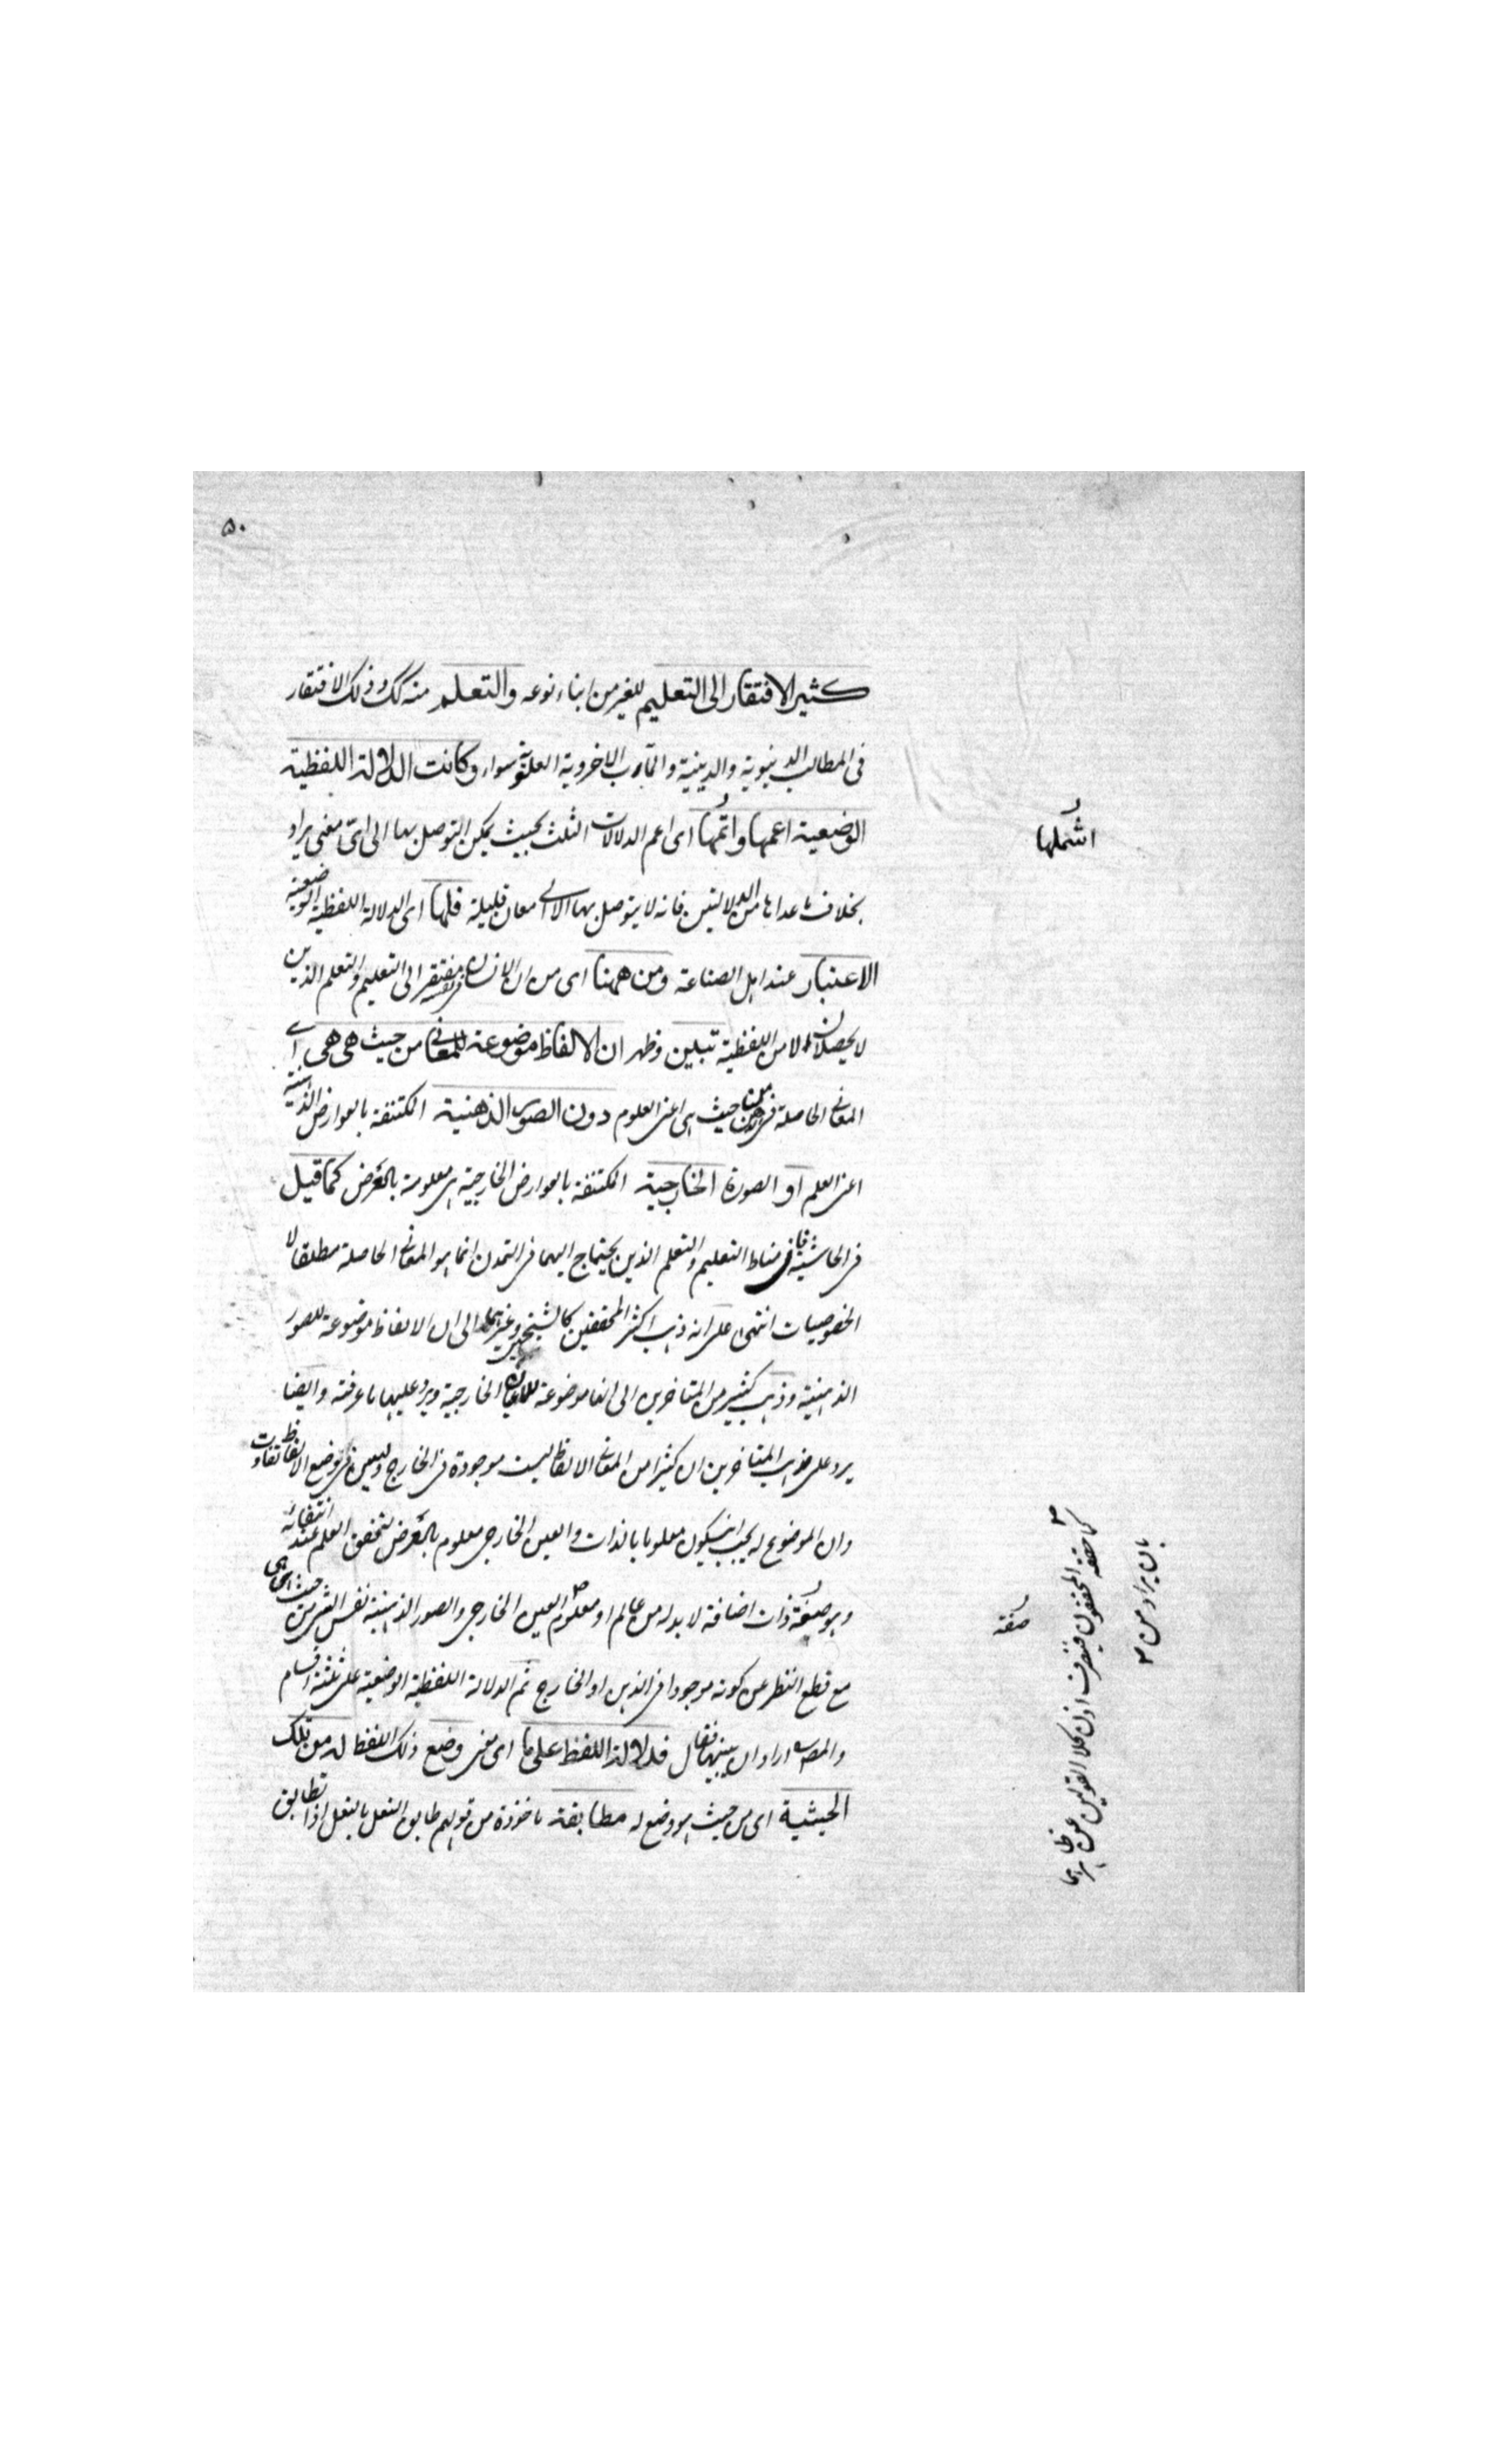 ٥٠
كثير الافتقار الى التعليم للغير من ابناء نوعه والتعلم منه كك وذلك الافتقار
فى المطالب الدنيوية والدينية والمآرب الاخروية العلوية سواء وكانت الدلالة اللفظية
الوضعية اعمها واتمها اى اعم الدلالات الثلث بحيث يمكن التوصل بها الى اىّ معنى يراد
اشملها
بخلاف ما عداها من الدلالتين فانه لا يتوصل بها الا الى معان قليلة فلها اى الدلالة اللفظية الوضعية
الاعتبار عند اهل الصناعة ومن ههنا اى من ان الانسان فى نفسه مفتقر الى التعليم والتعلم الذين
لا يحصلان الا من اللفظية تبين وظهر ان الالفاظ موضوعة للمعانى من حيث هى هى اى
المعانى الحاصلة فى الذهن من حيث هى اعنى المعلوم دون الصور الذهنية المكتنفة بالعوارض الذهنية
اعنى العلم او الصورة الخارجية المكتنفة بالعوارض الخارجية هى معلومة بالعرض كما قيل
فى الحاشية فان مناط التعليم والتعلم الذين يحتاج اليهما فى التمدن انما هو المعانى الحاصلة مطلقا لا
الخصوصيات انتهى على انه ذهب اكثر المحققين كالشيخين وغيرهما الى ان الالفاظ موضوعة للصور
الذهنية وذهب كثير من المتاخرين الى انها موضوعة للاعيان الخارجية ويرد عليهما ما عرفته وايضا
يرد على مذهب المتاخرين ان كثيرا من المعانى الالفاظ ليست موجودة فى الخارج وليس فى وضع الالفاظ تفاوت
وان الموضوع له يجب ان يكون معلوما بالذات والعين الخارجى معلوم بالعرض لتحقق العلم عند انتفائه
وهو صفة ذات اضافة لا بد له من عالم او معلوم العين الخارجى والصور الذهنية نفس الشئ من حيث هى هى
صفة
مع قطع النظر عن كونه موجودا فى الذهن او الخارج ثم الدلالة اللفظية الوضعية على ثلثة اقسام
والمصـ اراد ان يبينها فقال فدلالة اللفظ على ما اى معنى وضع ذلك اللفظ له من تلك
الحيثية اى من حيث هو وضع له مطابقة ماخوذة من قولهم طابق النعل بالنعل اذا تطابق
كما حققه المحققون فيصرف اذن كلا القولين عن ظاهرهما
بان يراد من